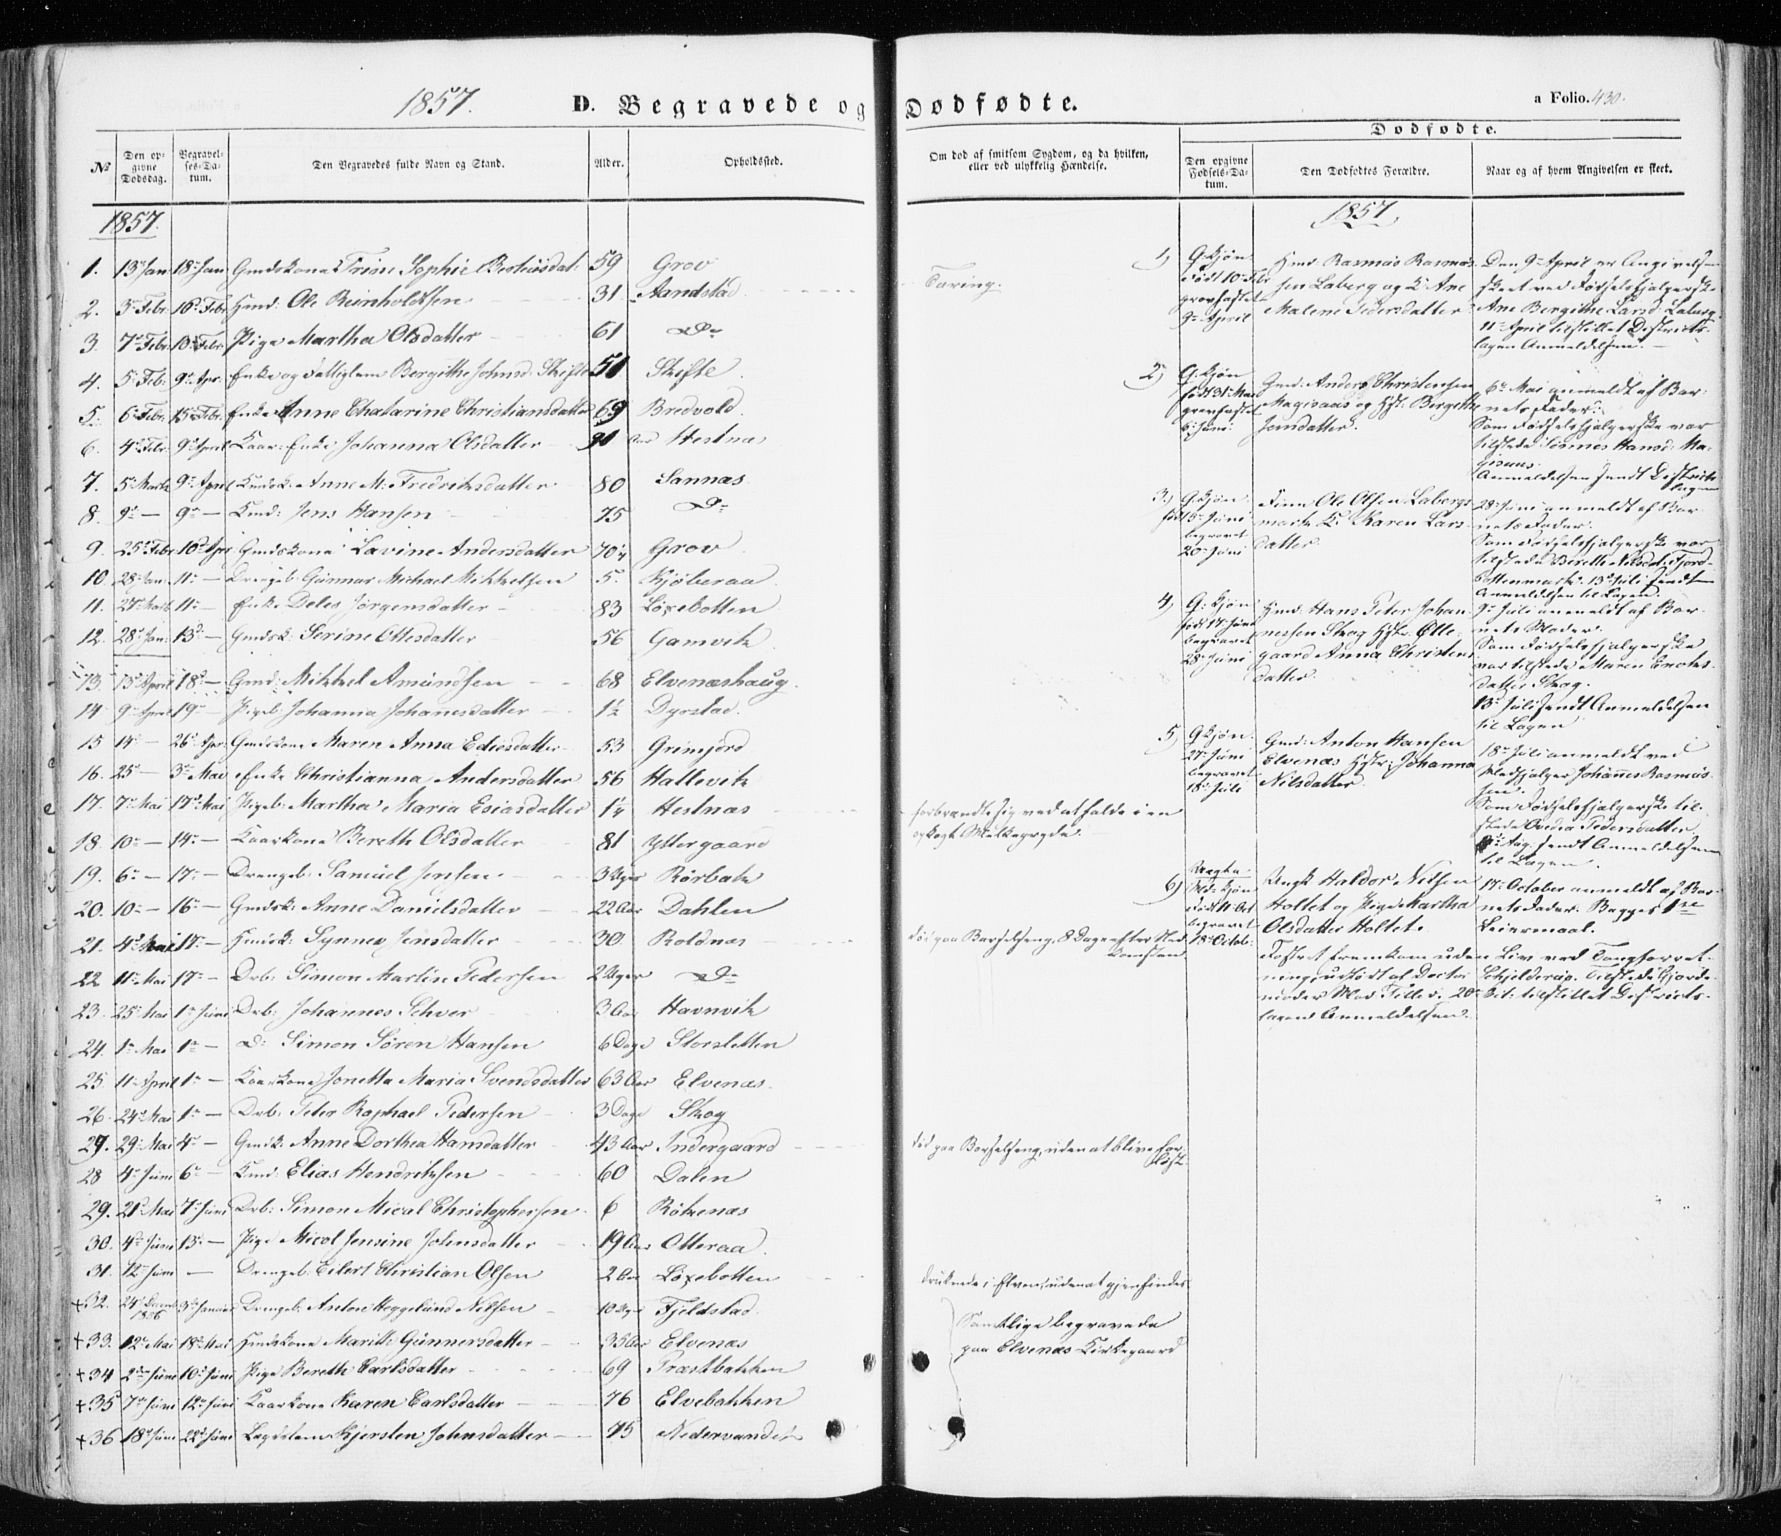 1857. D. Begravede og Dødfødte. a Folio. 430.
No
Den opgivne Dødsdag.
Begravelses-Datum.
Den Begravedes fulde Navn og Stand.
Alder.
Opholdssted.
Om død af smitsom Sygdom, og da hvilken, eller ved ulykkelig Hændelse.
Dødfødte.
Den opgivne Fødsels-Datum.
Den Dødfødtes Forældre.
Naar og af hvem Angivelsen er skeet.
1857.
1. 13 Jan 18 Jan Gmdskone Trine Sophie 59 Grov Tæring.
2. 3 Febr. 16 Febr. Hmd: Ole Reinholdtsen 31 Sandstad
3. 7 Febr. Febr. Pige Martha Olsdatter 61 Do
4. 5 Feb: 9 Apr. Enke og Bergithe Johnsd: Skifte 51 Skifte
5. 6 Febr. 15 Febr. Enke Anne Chatarine Christiansdatter 69 Bredvold
6. 4 Febr. 9 April Kaar-Enke Johanna Olsdatter 91 Hestnæs
7. 5 Marts 9 April Anne M. Fredriksdatter 80 Sannæs
8. 9 — 9 — Jens Hansen 75 Do
9. 25 Febr. 10 Apr Gmdskone Lavine Andersdatter 70 1/4 Grov
10. 28 Jan: 11 — Drengeb: Gunnar Michael Mikkelsen 5. Kjøberaa
11. 27 Marts 11 — Enke Deles Jørgensdatter 83 Løxebotten
12. 28 Jan: 13 — Gmdsk: Serine Ottesdatter 56 Gamvik
13. 13 April 18 — Gmd: Mikkel Amundsen 68 Elvenæshaug.
14 9 April 19 — Pigeb: Johanna Johanesdatter 1½ Dyrstad.
15 14 — 26 Apr. Gmdskone Maren Anna 53 Grimsjord
16. 25 — 3 Mai Enke Christianna Andersdatter 56 Hallevik
17. 7 Mai 17 Mai Pigeb: Martha Maria Esiasdatter 1¼ Hestnæs forbrændte sig ved at falde i en
opkogt Melkegryde.
18. 10 — 14 — Kaarkone Bereth Olsdatter 81 Yttergaard
19. 6 — 17 — Drengeb: Samuel Jensen 3 Uger Rørbak
20. 10 — 16 — Gmdsk: Anne Danielsdatter 22 Aar Dahlen
21. 4 Mai 17 — Hmdsk: Synnev Jensdatter 30. Roldnæs død paa Barselseng, 8 Dage efter Ned-
komsten
22 11 Mai 17 — Drb: Simon Martin Pedersen 2 Uger Do
23. 25 Mai 1 Juni Drb: Johannes Schver 3 Aar Havnvik
24. 1 Mai 1 — D: Simon Søren Hansen 6 Dage Storsletten
25 11 April 1 — Kaarkone Jonetta Maria Svendsdatter 63 Aar Elvenæs.
26. 24 Mai 1 — Drb: Peter Raphael Pedersen 3 Dage Skog
27. 29 Mai 4 — Gmdk: Anne Dorthea Hansdatter 43 Aar Indergaard død paa Barselseng, uden at blive for-
løst.
28 4 Juni 6 — Elias Hendriksen 60 Dalen
29. 21 Mai 7 Juni Drb: Simon Mical Christophersen 6 Røkenæs
30. 4 Juni 13 — Pige Micol Jensine Johnsdatter 19 Aar Otteraa
31. 12 Juni — Drengeb: Eilert Christian Olsen 2 Aar Løxebotten druknede i Elven, uden at gjenfindes.
+32. 24 Decemb 1856 Januar Drengeb: Anton Heggelund Nilsen 10 Uger Fjeldstad Samtlige begravede
+33. 12 Mai 18 Mai Hmdskone Marith Gunnersdatter 35 Aar Elvenæs paa Elvenæs Kirkegaard
+34 2 Juni 10 Juni Pige Bereth Carlsdatter 69 Præstbakken
+35 7 Juni 12 Juni Kaarkone Karen Carlsdatter 76 Elvebakken
+36 18 Juni 22 Juni Lægdslem Kjersten Johnsdatter 75 Nedervandet
1857
1) Q. kjøn født 10 Febr gravfæstet 9 April
Hmd. Rasmus Rasmussen Laberg og K. Ane Malene Pedersdatter
Den 9 April er Angivelsen skeet ved Fødselshjælperske Ane Bergithe Larsd: Laberg 11 April tilstillet Districtslægen Anmeldelsen. —
2) Q. kjøn født 31 Mai gravfæstet 6 Juni.
Gmd: Anders Christensen Magisaas og Hst: Bergithe Jensdatter.
Mai anmeldt af Barnets Fader. Som Fødselshjælperske var tilstede Hansd: Magisaas. Anmeldelsen sendt Districtslægen
3) Q. kjøn født 13 Juni begravet 20 Juni
Finn Ole Olsen Labergsmark K. Karen Larsdatter.
28 Juni anmeldt af Barnets Fader. Som Fødselshjælperske var tilstede Berethe Nilsd: Fjordbottenmark. 13 Juli sendt Anmeldelsen til Lægen.
4) Q. kjøn født 17 Juni begravet 28 Juni
Hmd. Hans Peter Johannessen Skog Hst: Ottegaard Anna Christensdatter.
9 Juli anmeldt af Barnets Moder. Som Fødselshjælperske var tilstede Maren Enoksdatter Skog. 15 Juli sendt Anmeldelsen til Lægen
5) Q kjøn. 27 Juni begravet 18 Juli
Gmd: Anton Hansen Elvenæs Hst: Johanna Nilsdatter.
18 Juli anmeldt ved Medhjælper Johannes Rasmussen. Som Fødselshjælperske tilstede Ovedia Pedersdatter Aug. sendt Anmeldelsen til Lægen.
6) Uægte. M: kjøn født 11 Oct begravet 18 Octob:
Ungk Haldor Nilsen Holtet og Pige Martha Olsdatter Holtet.
17 October anmeldt af Barnets Fader. Begges 1ste Leiermaal.
Fostret fremkom uden Liv ved Tangforretning, udført af Doctor Schjelderup. Tilstede Gjordemoder Mad Tiller. 20 Oct: tilstillet Districtslægen Anmeldelsen.